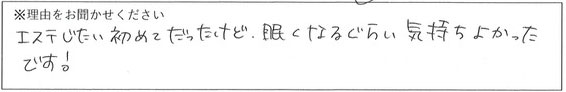 ※理由をお聞かせください
エステじたい初めてだったけど、眠くなるぐらい気持ちよかった
です!